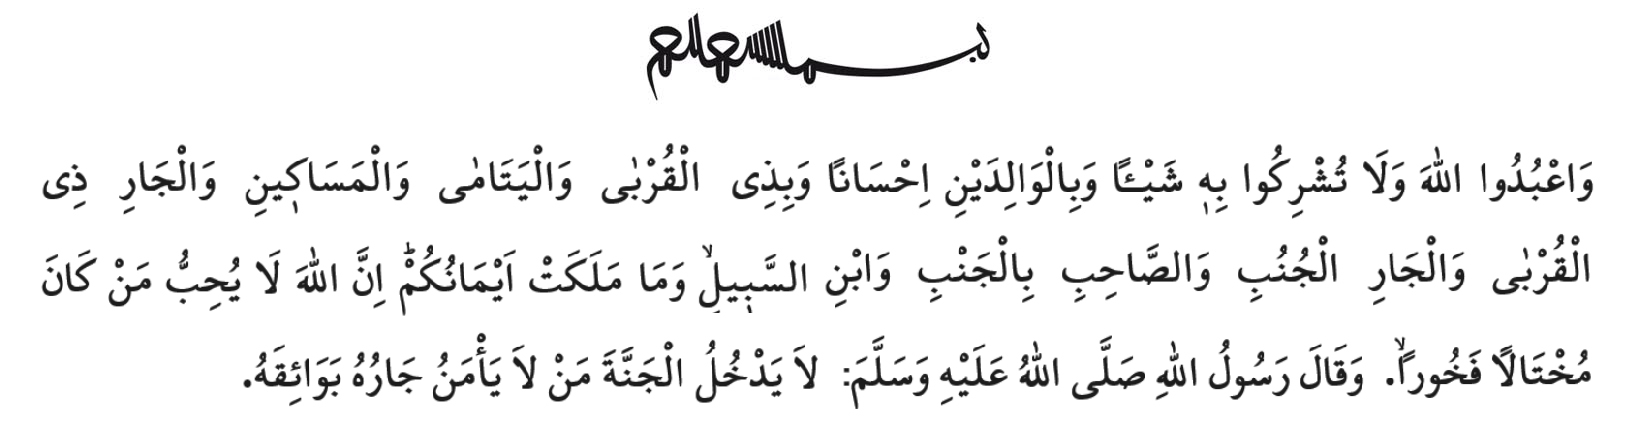 بسم الله الرحمن الرحيم
وَاعْبُدُوا اللّٰهَ وَلَا تُشْرِكُوا بِهٖ شَيْـًٔا وَبِالْوَالِدَيْنِ اِحْسَانًا وَبِذِى الْقُرْبٰى وَالْيَتَامٰى وَالْمَسَاكٖينِ وَالْجَارِ ذِى
الْقُرْبٰى وَالْجَارِ الْجُنُبِ وَالصَّاحِبِ بِالْجَنْبِ وَابْنِ السَّبٖيلِۙ وَمَا مَلَكَتْ اَيْمَانُكُمْؕ اِنَّ اللّٰهَ لَا يُحِبُّ مَنْ كَانَ
مُخْتَالًا فَخُوراًۙ. وَقَالَ رَسُولُ اللّٰهِ صَلَّى اللّٰهُ عَلَيْهِ وَسَلَّمَ: لاَ يَدْخُلُ الْجَنَّةَ مَنْ لاَ يَأْمَنُ جَارُهُ بَوَائِقَهُ.